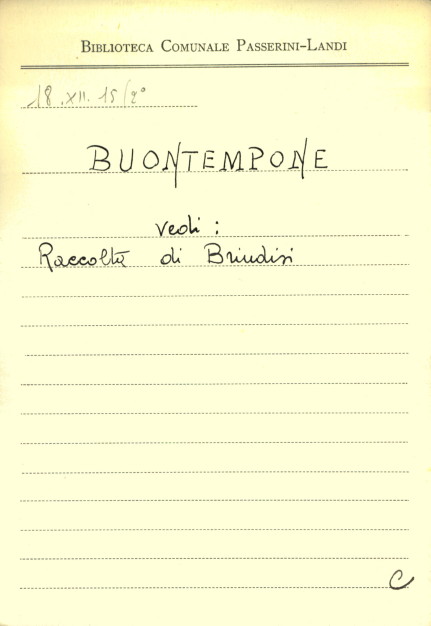 BIBLIOTECA COMUNALE PASSERINI-LANDI
18.XII.15/2°
BUONTEMPONE
vedi:
Raccolta di Brindisi
C